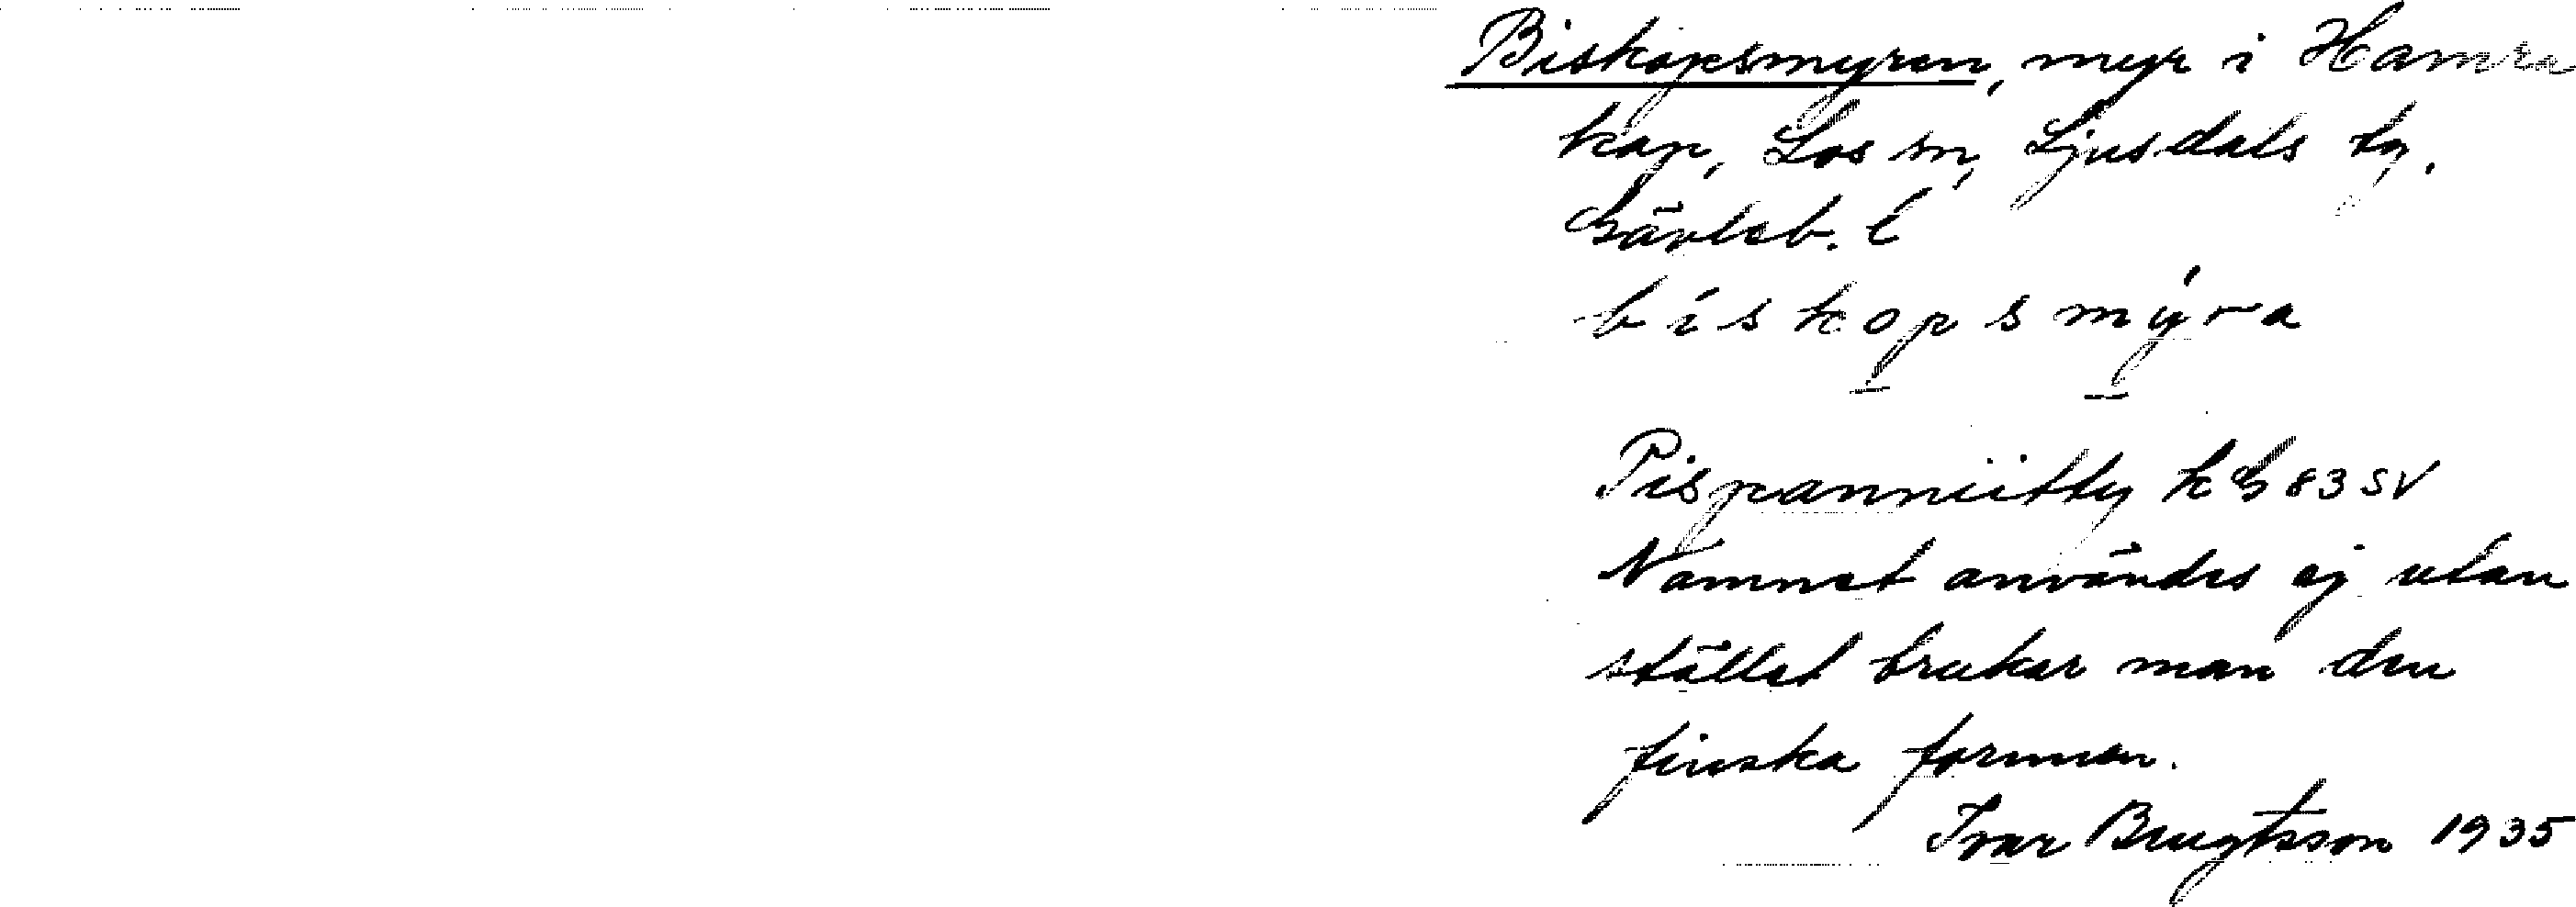 Biskopsmyren, myr i Hamra
kap, Los sn, Ljusdals tg.
Gävleb. l
b i s k o p s m ý r a
Pispanniitty k G 83 SV
Namnet användes ej utan
stället brukar man den
finska formen.
Ivar Bengtsson 1935